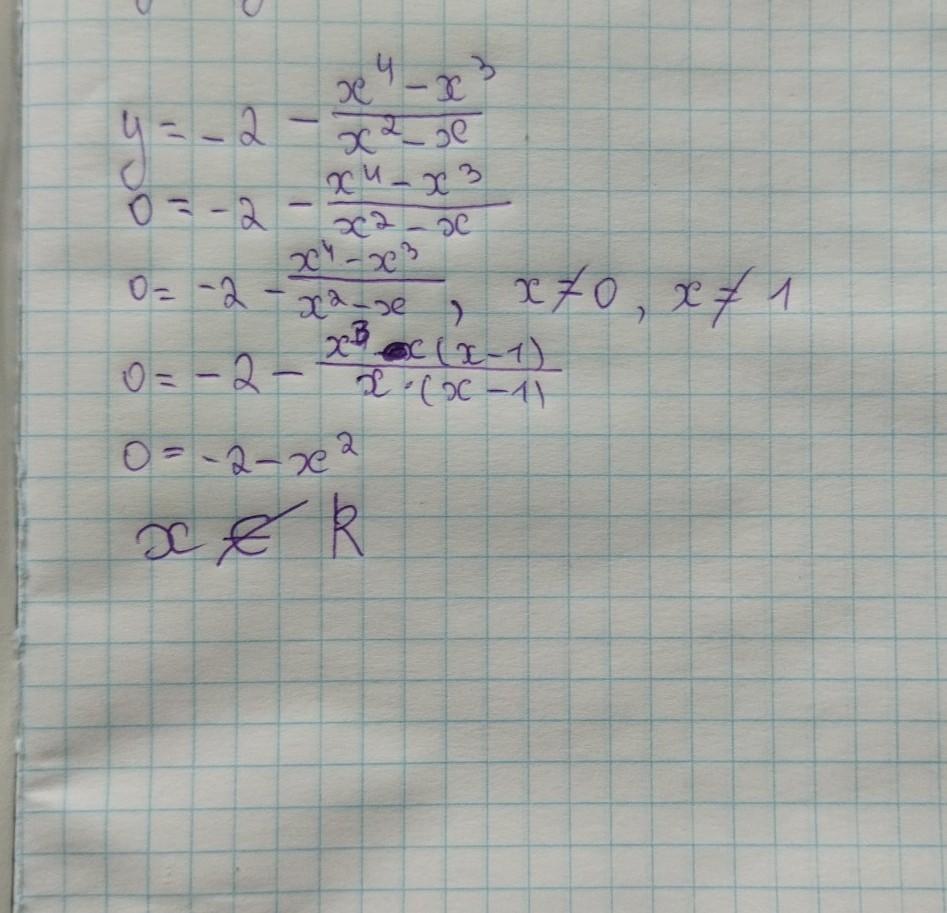 y = -2 - \frac{x^4 - x^3}{x^2 - x}
0 = -2 - \frac{x^4 - x^3}{x^2 - x}
0 = -2 - \frac{x^4 - x^3}{x^2 - x}, x ≠ 0, x ≠ 1
0 = -2 - \frac{x^3 (x - 1)}{x · (x - 1)}
0 = -2 - x^2
x ∉ R